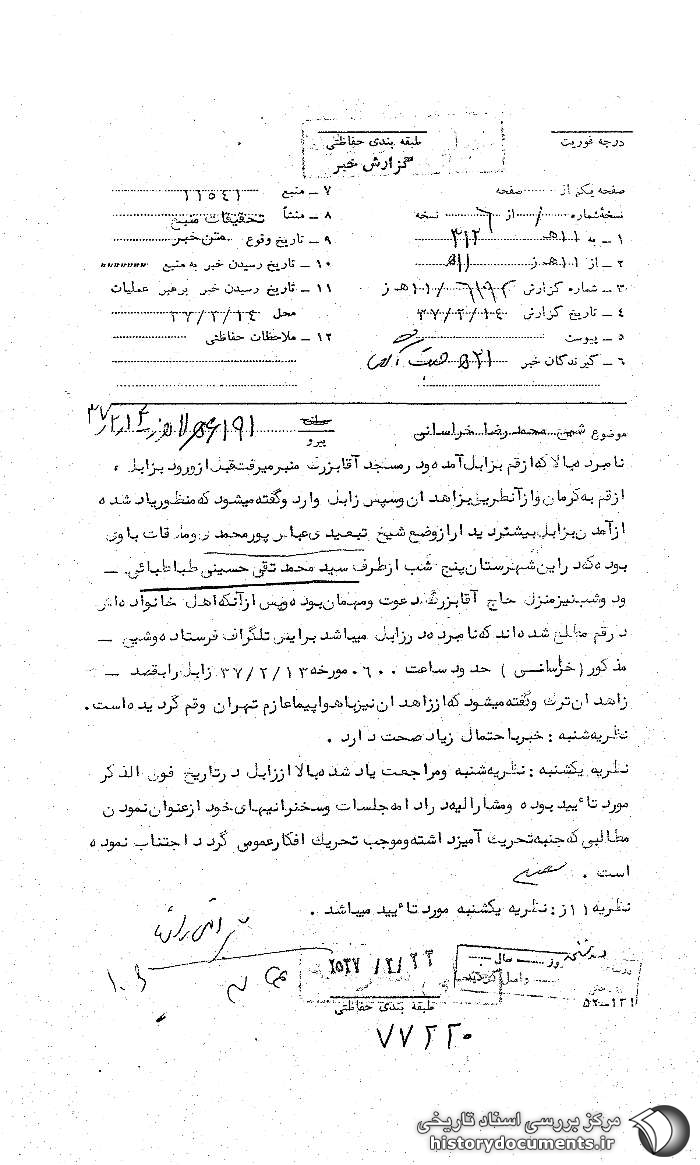 درجه فوریت
طبقه بندی حفاظتی
گزارش خبر
صفحه یکم از صفحه
نسخه شماره ۱ از ۶ نسخه
۱ ـ به ۳۱۲
۲ ـ از ۱۱ هـ ز
۳ ـ شماره گزارش
۴ ـ تاریخ گزارش ۳۷/۲/۱۴
۵ ـ پیوست
۶ ـ گیرندگان خبر
۷ ـ منبع ۱۱۵۴۱
۸ ـ منشأ تحقیقات منبع
۹ ـ تاریخ وقوع متن خبر
۱۰ ـ تاریخ رسیدن خبر به منبع
۱۱ ـ تاریخ رسیدن خبر برهبر عملیات
محل ۳۷/۲/۱۴
۱۲ ـ ملاحظات حفاظتی
موضوع شیخ محمد رضا خراسانی
پیرو
نامبرده بالا که از قم بزابل آمده و در مسجد آقا بزرگ منبر میرفت قبل از ورود بزابل ،
از قم به کرمان و از آنطریق بزاهدان و سپس زابل وارد و گفته میشود که منظور یاد شده
از آمدن بزابل بیشتر دیدار از وضع شیخ تبعیدی عباس پورمحمدی و ملاقات با وی
بوده که در این شهرستان پنج شب از طرف سید محمد تقی حسینی طباطبائی ـ
و دو شب نیز منزل حاج آقا بزرگ دعوت و مهمان بوده و پس از آنکه اهل خانواده اش
در قم مطلع شده اند که نامبرده در زابل میباشد برایش تلگراف فرستاده و شیخ ـ
مذکور (خراسانی) حدود ساعت ۰۶۰۰ مورخه ۳۷/۲/۱۳ زابل را بقصد ـ
زاهدان ترک و گفته میشود که از زاهدان نیز با هواپیما عازم تهران و قم گردیده است.
نظریه شنبه : خبر باحتمال زیاد صحت دارد .
نظریه یکشنبه : نظریه شنبه و مراجعت یاد شده بالا از زابل در تاریخ فوق الذکر
مورد تائید بوده و مشارالیه در ادامه جلسات و سخنرانیهای خود از عنوان نمودن
مطالبی که جنبه تحریک آمیز داشته و موجب تحریک افکار عمومی گردد اجتناب نموده
است .
نظریه ۱۱ ز: نظریه یکشنبه مورد تائید میباشد .
۲۵۳۷/۲/۲۳
روز سال
واصل گردید
طبقه بندی حفاظتی
۵۲-۱۳۱
۷۷۲۲۰
مرکز بررسی اسناد تاریخی
historydocuments.ir